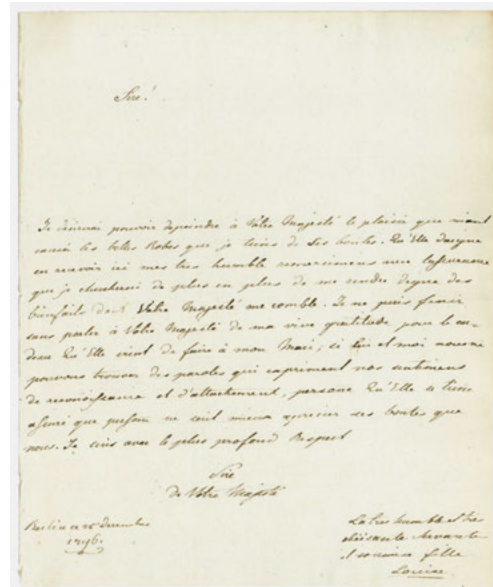 Sire!
Je désirerai pouvoir dépeindre à Votre Majesté le plaisir que m'ont
causés les belles Robes que je tiens de Ses bontés. Qu'Elle daigne
en recevoir ici mes tres humble remercimens avec l'assurance
que je chercherai de plus en plus de me rendre digne des
bienfaits dont Votre Majesté me comble. Je ne puis finir
sans parler à Votre Majesté de ma vive gratitude pour le ca-
deau Qu'Elle vient de faire à mon Mari; si lui et moi nous ne
pouvons trouver des paroles qui expriment nos sentimens
de reconnoissance et d'attachement, Qu'Elle
que ne sait mieux aprecier ses bontés que
nous. Je suis avec le plus profond Respect
Sire
de Votre Majesté
Berlin ce Decembre
1796.
La tres humble et très
obéissante Servante
et soumise fille
Louise.